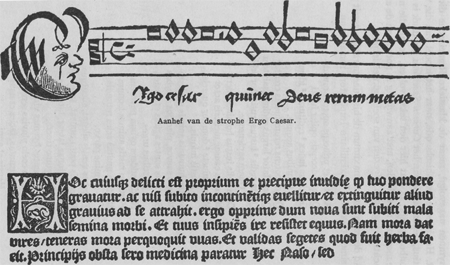 Ergo cesar quin nec Deus rerum metas
Aanhef van de strophe Ergo Caesar.
HOc cuiusq₃ delicti est proprium et precipue inuidię ꝙ suo pondere
grauatur. ac nisi subito incontinētiq₃ euellitur et extinguitur aliud
grauius ad se attrahit. ergo opprime dum noua sunt subiti mala
semina morbi. Et tuus insipiēs ire resistet equus. Nam mora dat
vires/teneras mora perquoquit vuas. Et validas segetes quod fuit herba fa-
cit. Principijs obsta sero medicina paratur Hec Naso/sed